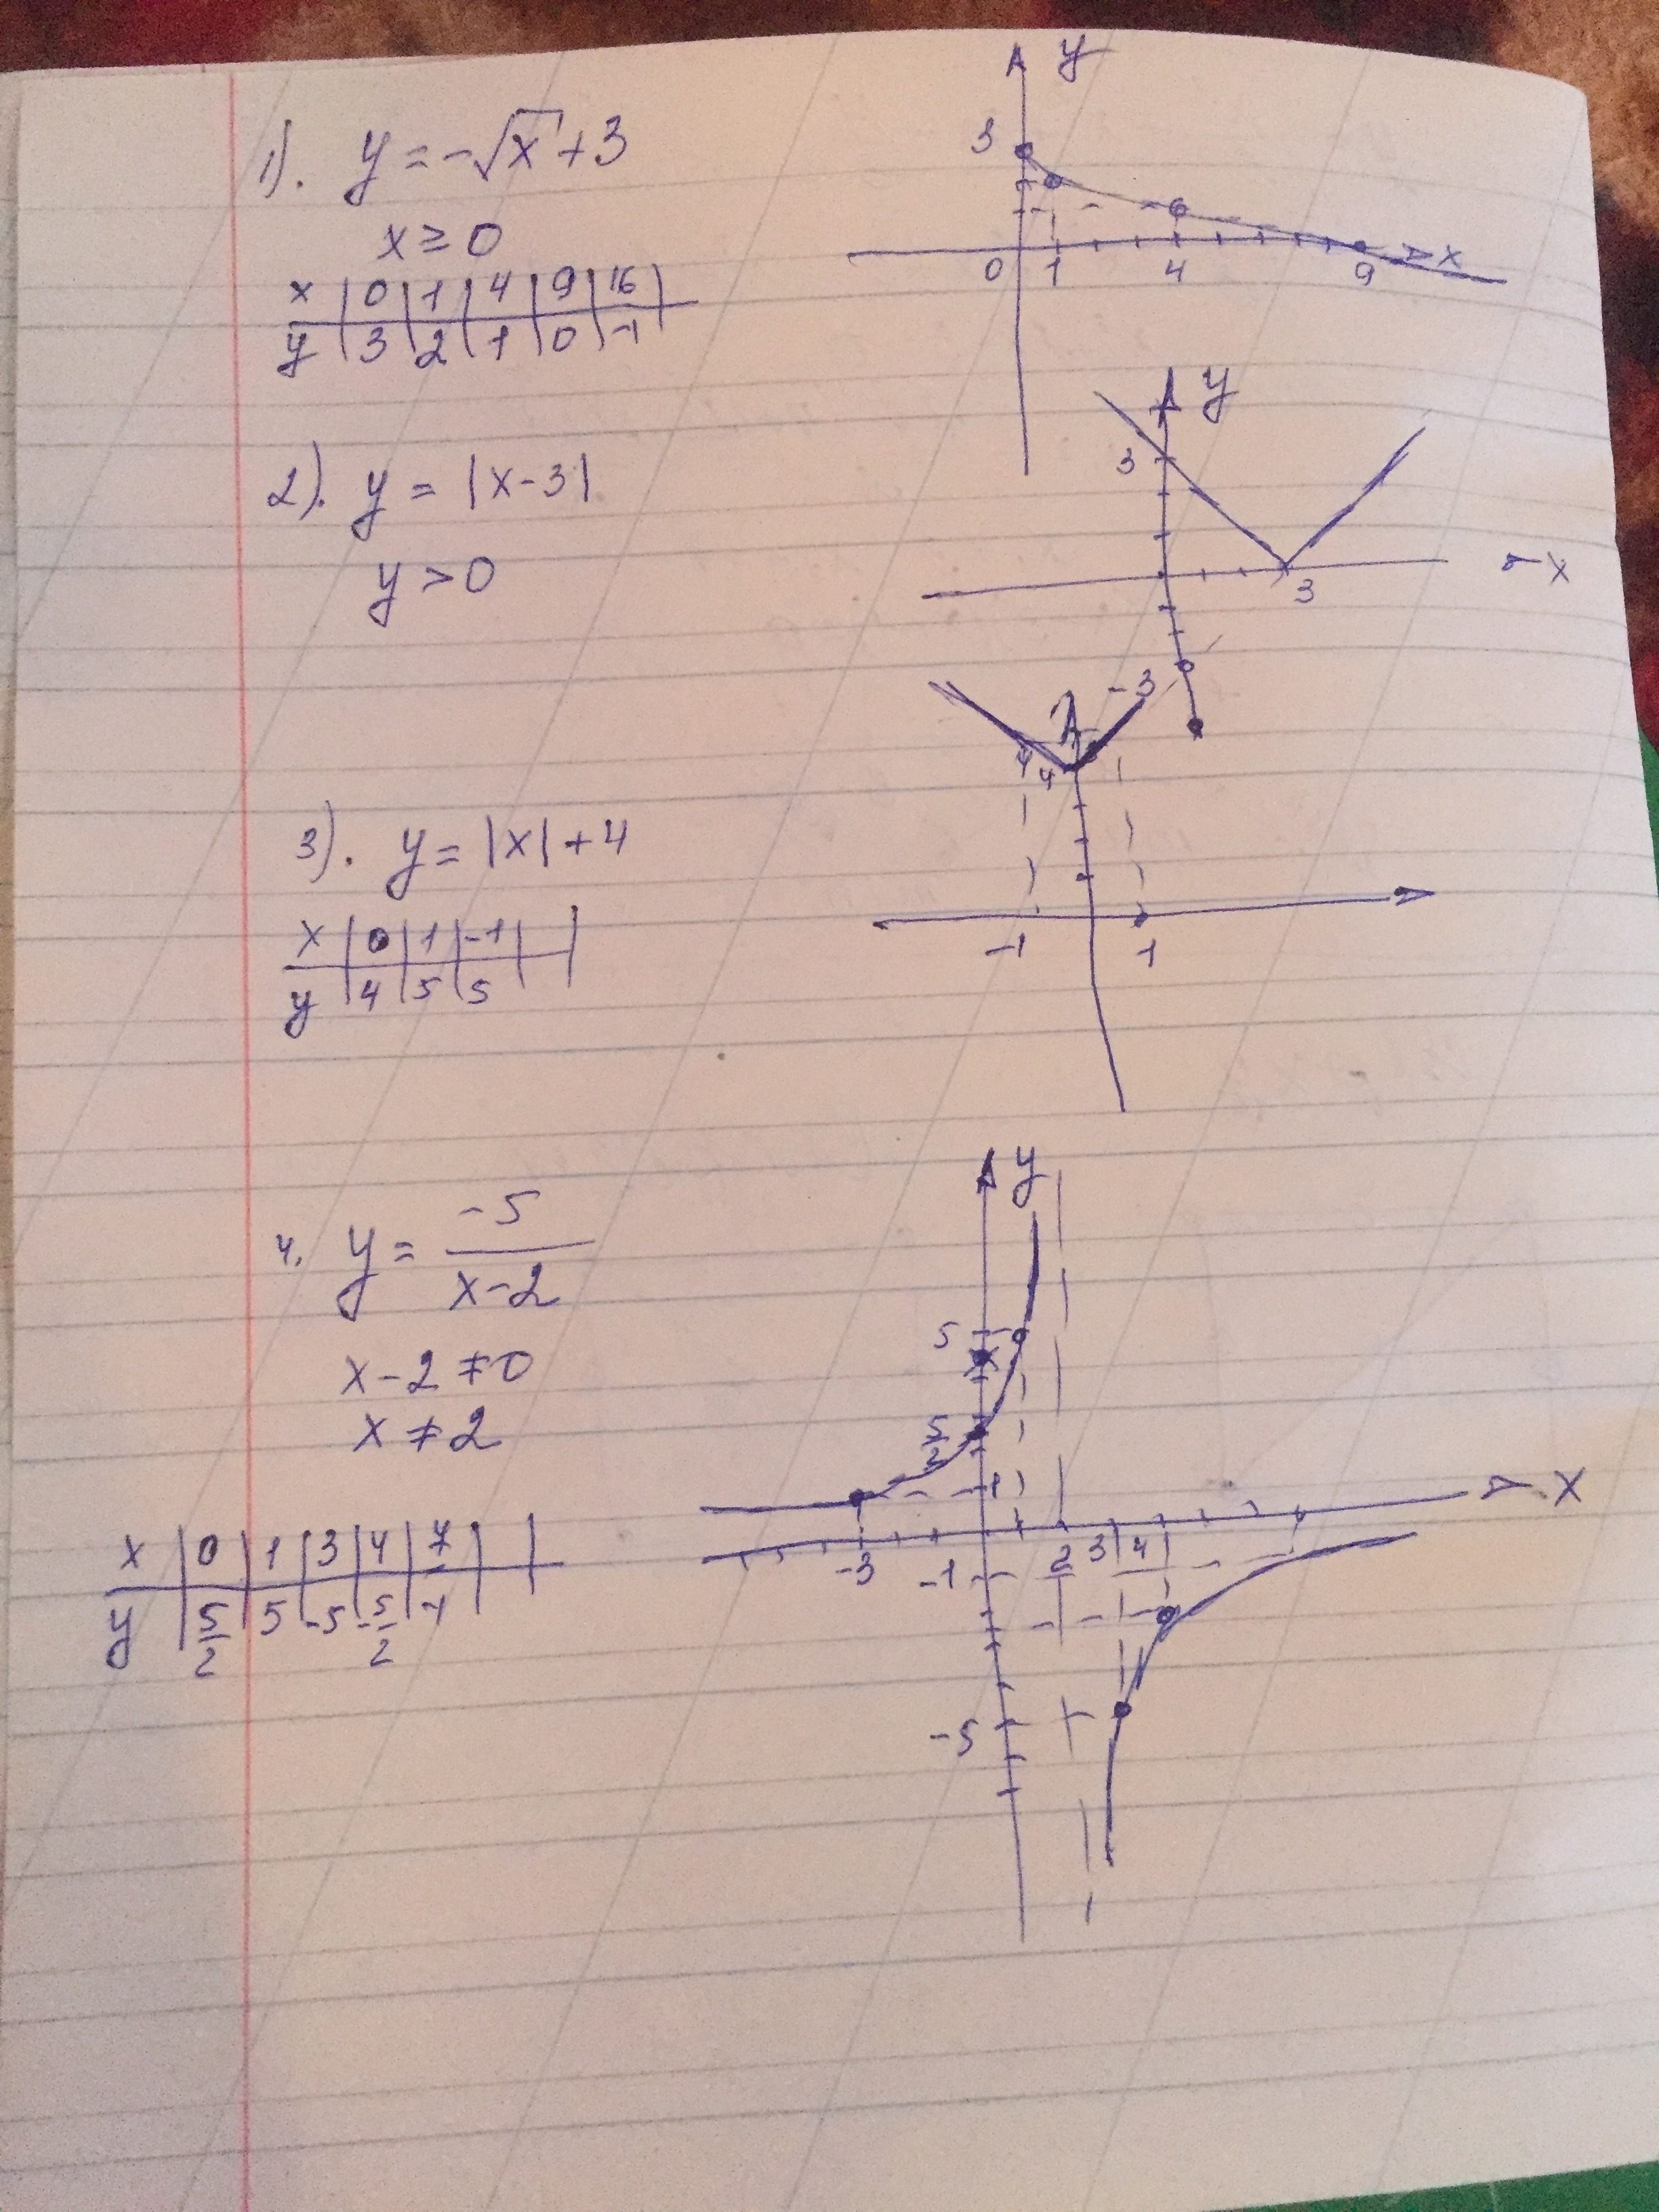 1). y = -√x + 3
x ≥ 0
x | 0 | 1 | 4 | 9 | 16 |
y | 3 | 2 | 1 | 0 | -1
y
3
0 1 4 9 x
2). y = |x-3|
y > 0
y
3
3
x
-3
3). y = |x| + 4
x | 0 | 1 | -1 | |
y | 4 | 5 | 5
4
-1 1
4. y = -5/(x-2)
x-2 ≠ 0
x ≠ 2
x | 0 | 1 | 3 | 4 | 7 | |
y | 5/2 | 5 | -5 | -5/2 | -1 |
y
5
5/2
1
x
-3 -1 2 3 4
-5